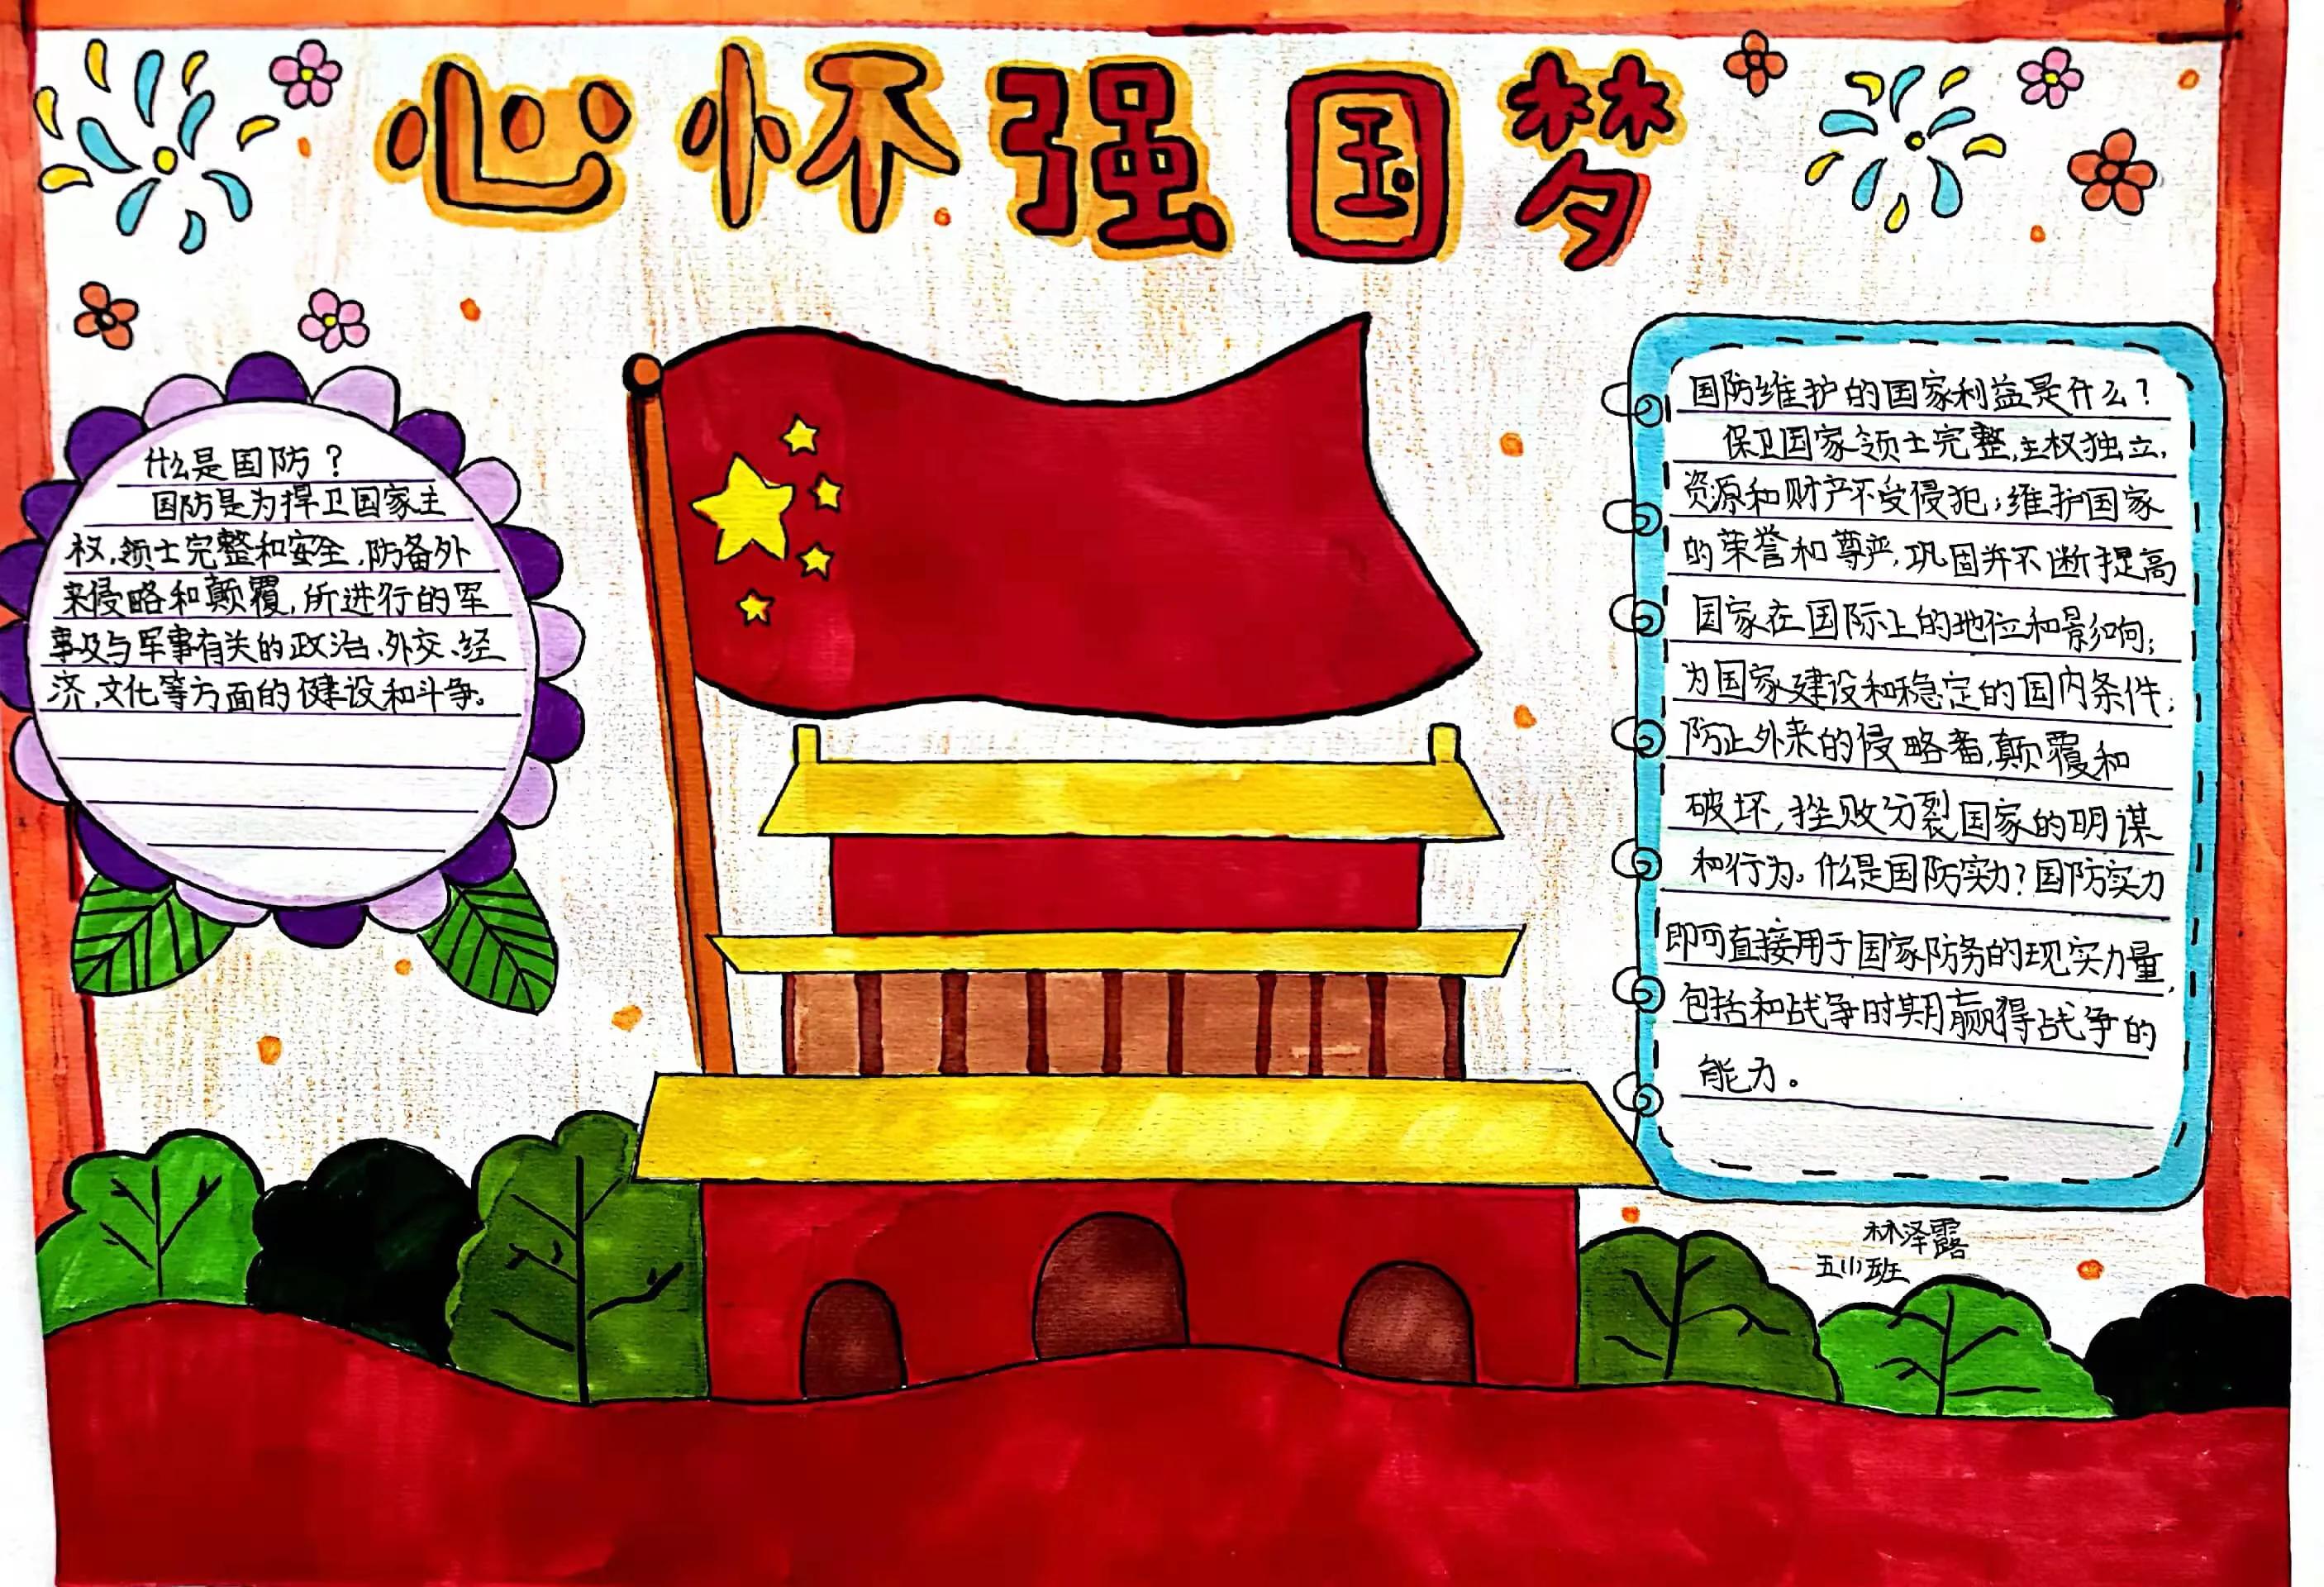 心怀强国梦
什么是国防？
国防是为捍卫国家主
权、领土完整和安全，防备外
来侵略和颠覆，所进行的军
事及与军事有关的政治、外交、经
济、文化等方面的健设和斗争。
国防维护的国家利益是什么？
保卫国家领土完整，主权独立，
资源和财产不受侵犯；维护国家
的荣誉和尊严，巩固并不断提高
国家在国际上的地位和影响；
为国家建设和稳定的国内条件；
防止外来的侵略者，颠覆和
破坏，挫败分裂国家的明谋
和行为。什么是国防实力？国防实力
即可直接用于国家防务的现实力量，
包括和战争时期赢得战争的
能力。
林泽露
五(1)班